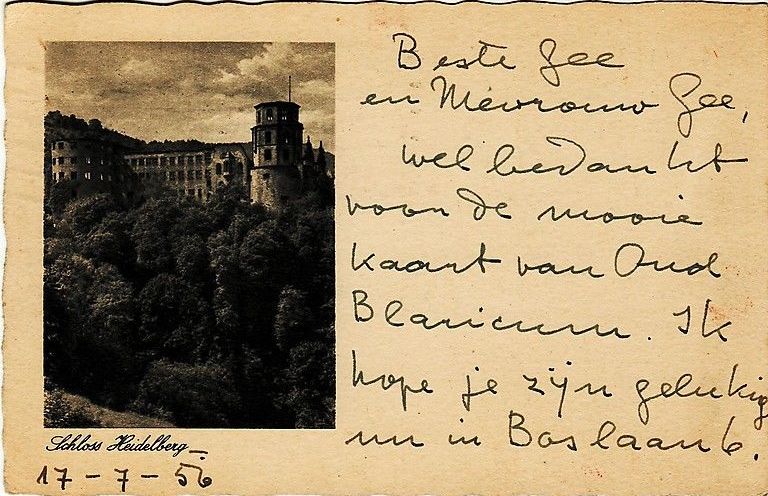 Beste Gee
en Mevrouw Gee,
wel bedankt
voor de mooie
kaart van Oud
Blaricum. Ik
hope je zijn gelukig
nu in Boslaan 6.
Schloss Heidelberg
17-7-56